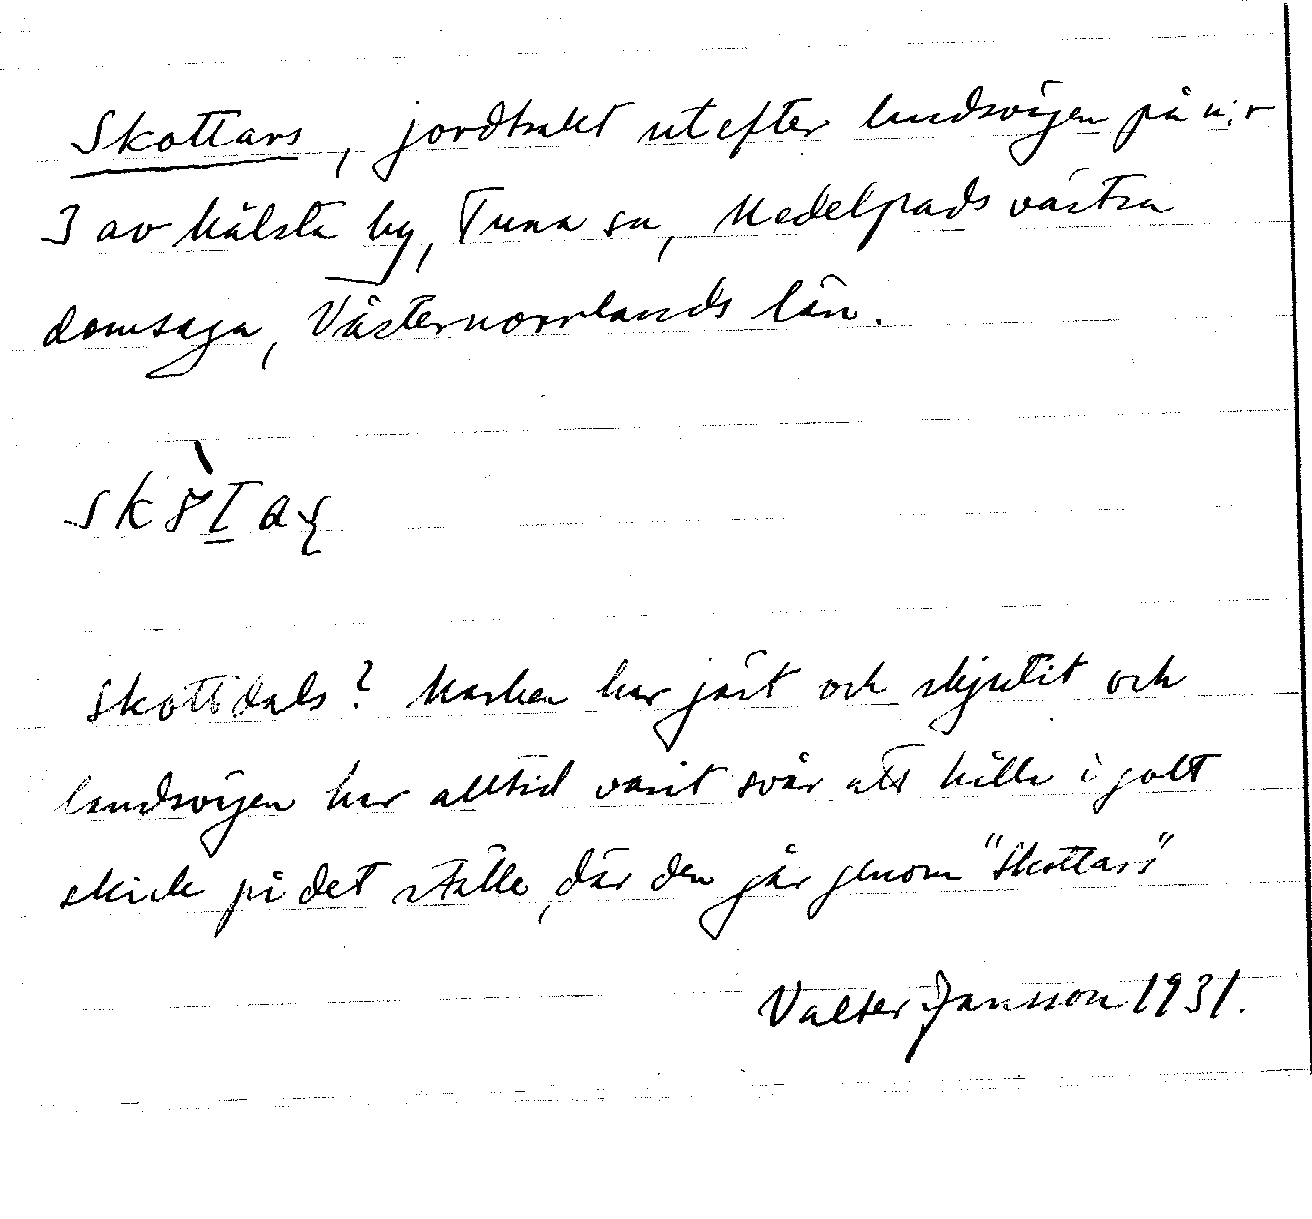 Skottars, jordtrakt utefter landsvägen på n:r
3 av Målsta by, Tuna sn, Medelpads västra
domsaga, Västernorrlands län.
Skottdals? Marken har jäst och skjutit och
landsvägen har alltid varit svår att hålla i gott
skick på det ställe, där den går genom "Skottars"
Valter Jansson 1931.